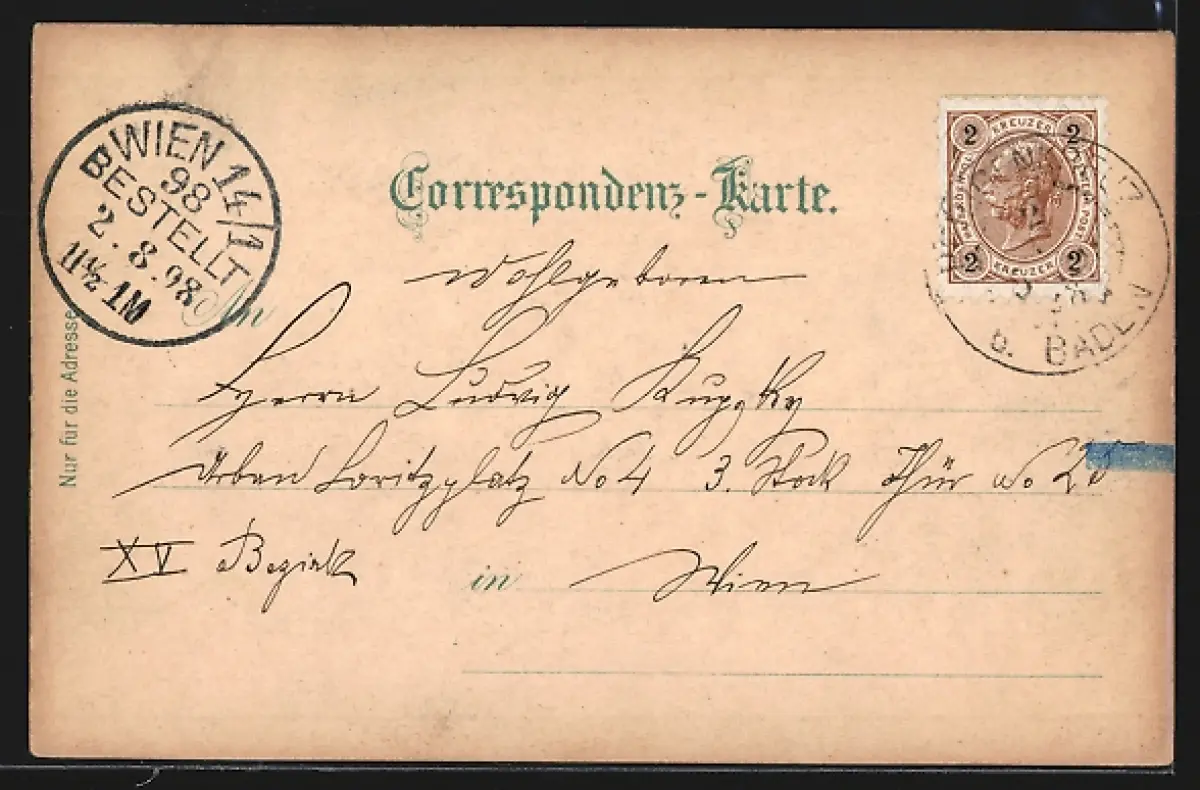 WIEN 14/1
98
BESTELLT
2.8.98
11½ VM
Correspondenz-Karte.
2 KREUZER 2
2 KREUZER 2
b. BADEN
Wohlgeboren
An
Herrn Ludwig Kupzky
Urban Loritzplatz No 4 3. Stock Thür No
XV Bezirk in Wien
Nur für die Adresse